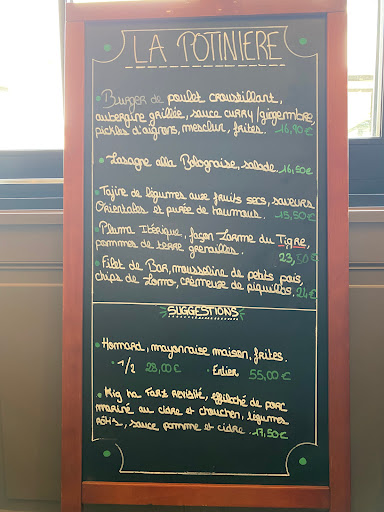 LA POTINIERE
• Burger de poulet croustillant,
aubergine grillée, sauce curry/gingembre,
pickles d'oignons, mesclun, frites. 16,90€
• Lasagne alla Bolognaise, salade. 16,50€
• Tajine de légumes aux fruits secs, saveurs
Orientales et purée de houmous. 15,50€
• Pluma Ibérique, façon Larme du Tigre,
pommes de terre grenailles. 23,50€
• Filet de Bar, mousseline de petits pois,
chips de Lomo, crémeuse de piquillos. 24€
SUGGESTIONS
• Homard, mayonnaise maison, frites.
• 1/2 28,00€ • Entier. 55,00€
• Kig ha Farz revisité, effiloché de porc
mariné au cidre et chouchen, légumes
rôtis, sauce pomme et cidre. 17,50€